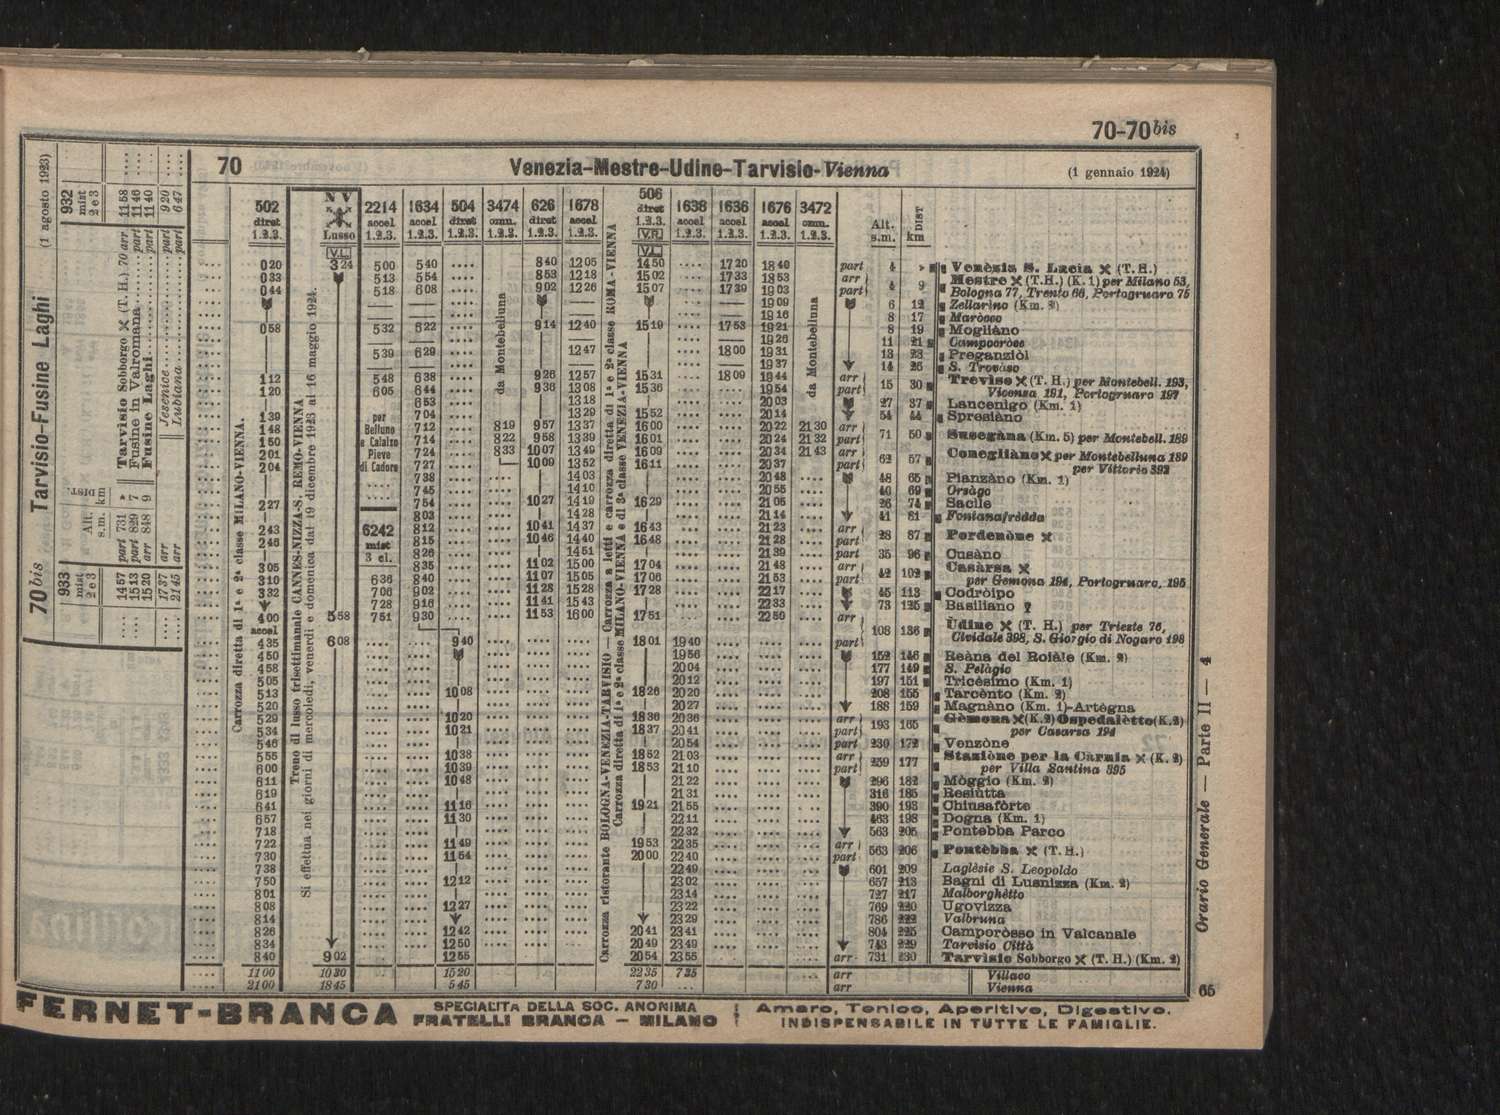 70-70 bis
70
Venezia-Mestre-Udine-Tarvisio-Vienna
(1 gennaio 1924)
502 diret 1.2.3.
N V Lusso V.L.
2214 accel 1.2.3.
1634 accel 1.2.3.
504 diret 1.2.3.
3474 omn. 1.2.3.
626 diret 1.2.3.
1678 accel 1.2.3.
506 diret 1.2.3. V.R. V.L.
1638 accel 1.2.3.
1636 accel 1.2.3.
1676 accel 1.2.3.
3472 omn. 1.2.3.
Alt. s.m.
DIST km
0 20 3 24 5 00 5 40 8 40 12 05 14 50 17 20 18 40 part 4 » Venèzia S. Lucia (T. H.)
0 33 5 13 5 54 8 53 12 18 15 02 17 33 18 53 arr 4 9 Mestre (T.H.) (K. 1) per Milano 53,
0 44 5 18 6 08 9 02 12 26 15 07 17 39 19 03 part Bologna 77, Trento 66, Portogruaro 75
19 09 6 12 Zellarino
19 16 8 17 Maròcco
0 58 5 32 6 22 9 14 12 40 15 19 17 53 19 21 8 19 Mogliàno
19 26 11 21 Campocròce
5 39 6 29 12 47 18 00 19 31 13 23 Preganziòl
19 37 14 26 S. Trovàso
1 12 5 48 6 38 9 26 12 57 15 31 18 09 19 44 arr 15 30 Treviso (T. H.) per Montebell. 193,
1 20 6 05 6 44 9 36 13 08 15 36 19 54 part Vicenza 191, Portogruaro 197
6 53 13 18 20 03 27 37 Lancenigo (Km. 1)
1 39 7 04 13 29 15 52 20 14 54 44 Spresiàno
1 48 7 12 8 19 9 57 13 37 16 00 20 22 21 30 arr 71 50 Susegàna (Km. 5) per Montebell. 189
1 50 7 14 8 22 9 58 13 39 16 01 20 24 21 32 part
2 01 7 24 8 33 10 07 13 49 16 09 20 34 21 43 arr 62 57 Conegliàno per Montebelluna 189
2 04 7 27 10 09 13 52 16 11 20 37 part per Vittorio 392
7 38 14 03 20 48 48 65 Pianzàno (Km. 1)
7 45 14 10 20 55 40 69 Orsàgo
2 27 7 54 10 27 14 19 16 29 21 05 26 74 Sacile
8 03 14 28 21 14 41 81 Fontanafrèdda
2 43 8 12 10 41 14 37 16 43 21 23 arr 28 87 Pordenòne
2 46 8 15 10 46 14 40 16 48 21 28 part
8 26 14 51 21 39 part 35 96 Cusàno
3 05 8 35 11 02 15 00 17 04 21 48 arr 42 102 Casàrsa
3 10 6 36 8 40 11 07 15 05 17 06 21 53 part per Gemona 194, Portogruaro, 195
3 32 7 06 9 02 11 28 15 28 17 28 22 17 45 113 Codròipo
7 28 9 16 11 41 15 43 22 33 73 125 Basiliano
4 00 5 58 7 51 9 30 11 53 16 00 17 51 22 50 arr 108 136 Ùdine (T. H.) per Trieste 76,
accel
4 35 6 08 9 40 18 01 19 40 part Cividale 398, S. Giorgio di Nogaro 198
4 50 19 56 152 146 Reàna del Roiàle (Km. 2)
4 58 20 04 177 149 S. Pelàgio
5 05 20 12 197 151 Tricèsimo (Km. 1)
5 13 10 08 18 26 20 20 208 155 Tarcènto (Km. 2)
5 20 20 27 188 159 Magnàno (Km. 1)-Artègna
5 29 10 20 18 36 20 36 arr 193 165 Gèmona (K.2) Ospedalètto (K.2)
5 34 10 21 18 37 20 41 part per Casarsa 194
5 46 20 54 part 230 172 Venzòne
5 55 10 38 18 52 21 03 arr 259 177 Stazióne per la Càrnia (K. 2)
6 00 10 39 18 53 21 10 part per Villa Santina 395
6 11 10 48 21 22 296 182 Mòggio (Km. 2)
6 19 21 31 316 185 Resiutta
6 41 11 16 19 21 21 55 390 193 Chiusafòrte
6 57 11 30 22 11 463 198 Dogna (Km. 1)
7 18 22 32 563 205 Pontèbba Parco
7 22 11 49 19 53 22 35 arr 563 206 Pontèbba (T. H.)
7 30 11 54 20 00 22 40 part
7 38 22 49 601 209 Laglèsie S. Leopoldo
7 50 12 12 23 02 657 213 Bagni di Lusnizza (Km. 2)
8 01 23 14 727 217 Malborghètto
8 08 12 27 23 22 769 220 Ugovizza
8 14 23 29 786 222 Valbruna
8 26 12 42 20 41 23 41 804 225 Camporòsso in Valcanale
8 34 12 50 20 49 23 49 743 229 Tarvisio Città
8 40 9 02 12 55 20 54 23 55 arr 731 230 Tarvisio Sobborgo (T. H.) (Km. 2)
11 00 10 30 15 20 22 35 7 25 arr Villaco
21 00 18 45 5 45 7 30 arr Vienna
per Belluno e Calalzo Pieve di Cadore
6242 mist 3 cl.
da Montebelluna
da Montebelluna
Carrozza diretta di 1ª e 2ª classe MILANO-VIENNA.
Treno di lusso trisettimanale CANNES-NIZZA-S. REMO-VIENNA
Si effettua nei giorni di mercoledì, venerdì e domenica dal 19 dicembre 1923 al 16 maggio 1924.
Carrozza ristorante BOLOGNA-VENEZIA-TARVISIO — Carrozza a letti e carrozza diretta di 1ª e 2ª classe ROMA-VIENNA
Carrozza diretta di 1ª e 2ª classe MILANO-VIENNA e di 3ª classe VENEZIA-VIENNA
70 bis Tarvisio-Fusine Laghi (1 agosto 1923)
933 mist 2 e 3
Alt. s.m.
DIST. km
932 mist 2 e 3
14 57 part 731 » Tarvisio Sobborgo (T. H.) 70 arr. 11 58
15 13 part 829 7 Fusine in Valromana part 11 46
15 20 arr 848 9 Fusine Laghi part 11 40
17 37 arr Jesenice part 9 20
21 45 arr Lubiana part 6 47
Orario Generale — Parte II — 4
65
FERNET-BRANCA
SPECIALITA DELLA SOC. ANONIMA
FRATELLI BRANCA — MILANO
Amaro, Tonico, Aperitivo, Digestivo.
INDISPENSABILE IN TUTTE LE FAMIGLIE.